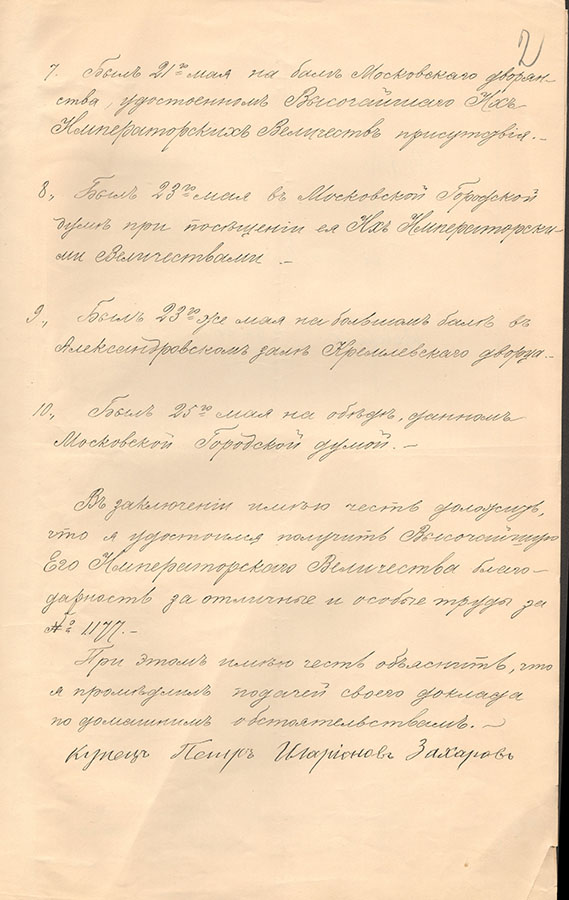 2
7. Былъ 21го мая на балѣ Московскаго дворян-
ства, удостоенномъ Высочайшаго Ихъ
Императорскихъ Величествъ присутствія. –
8., Былъ 23го мая въ Московской Городской
думѣ при посѣщеніи ея Ихъ Императорски-
ми Величествами –
9., Былъ 23го же мая на большомъ балѣ въ
Александровскомъ залѣ Кремлевскаго дворца. –
10., Былъ 25го мая на обѣдѣ, данномъ
Московской Городской думой. –
Въ заключеніи имѣю честь доложить,
что я удостоился получить Высочайшую
Его Императорскаго Величества благо-
дарность за отличные и особые труды за
№ 1177. –
При этомъ имѣю честь объяснить, что
я промедлилъ подачей своего доклада
по домашнимъ обстоятельствамъ. –
купецъ Петръ Иларіоновъ Захаровъ